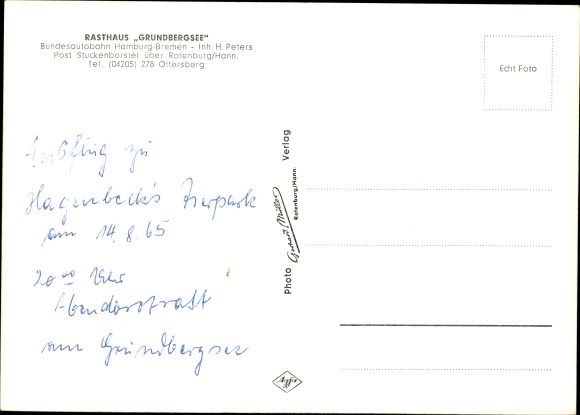 RASTHAUS „GRUNDBERGSEE"
Bundesautobahn Hamburg-Bremen - Inh. H. Peters
Post Stuckenborstel über Rotenburg/Hann.
Tel. (04205) 278 Ottersberg
Echt Foto
Ausflug zu
Hagenbeck's Tierpark
am 14.8.65
20 00 Uhr
Abendbrotrast
am Grundbergsee
Photo Gerhard Müller Rotenburg/Hann. Verlag
Agfa